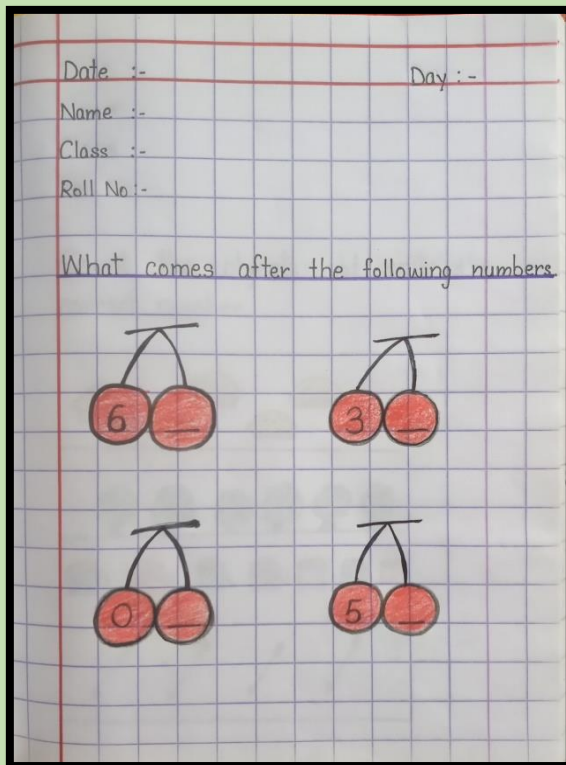 Date :- Day :-
Name :-
Class :-
Roll No :-
What comes after the following numbers
6 _ 3 _
0 _ 5 _